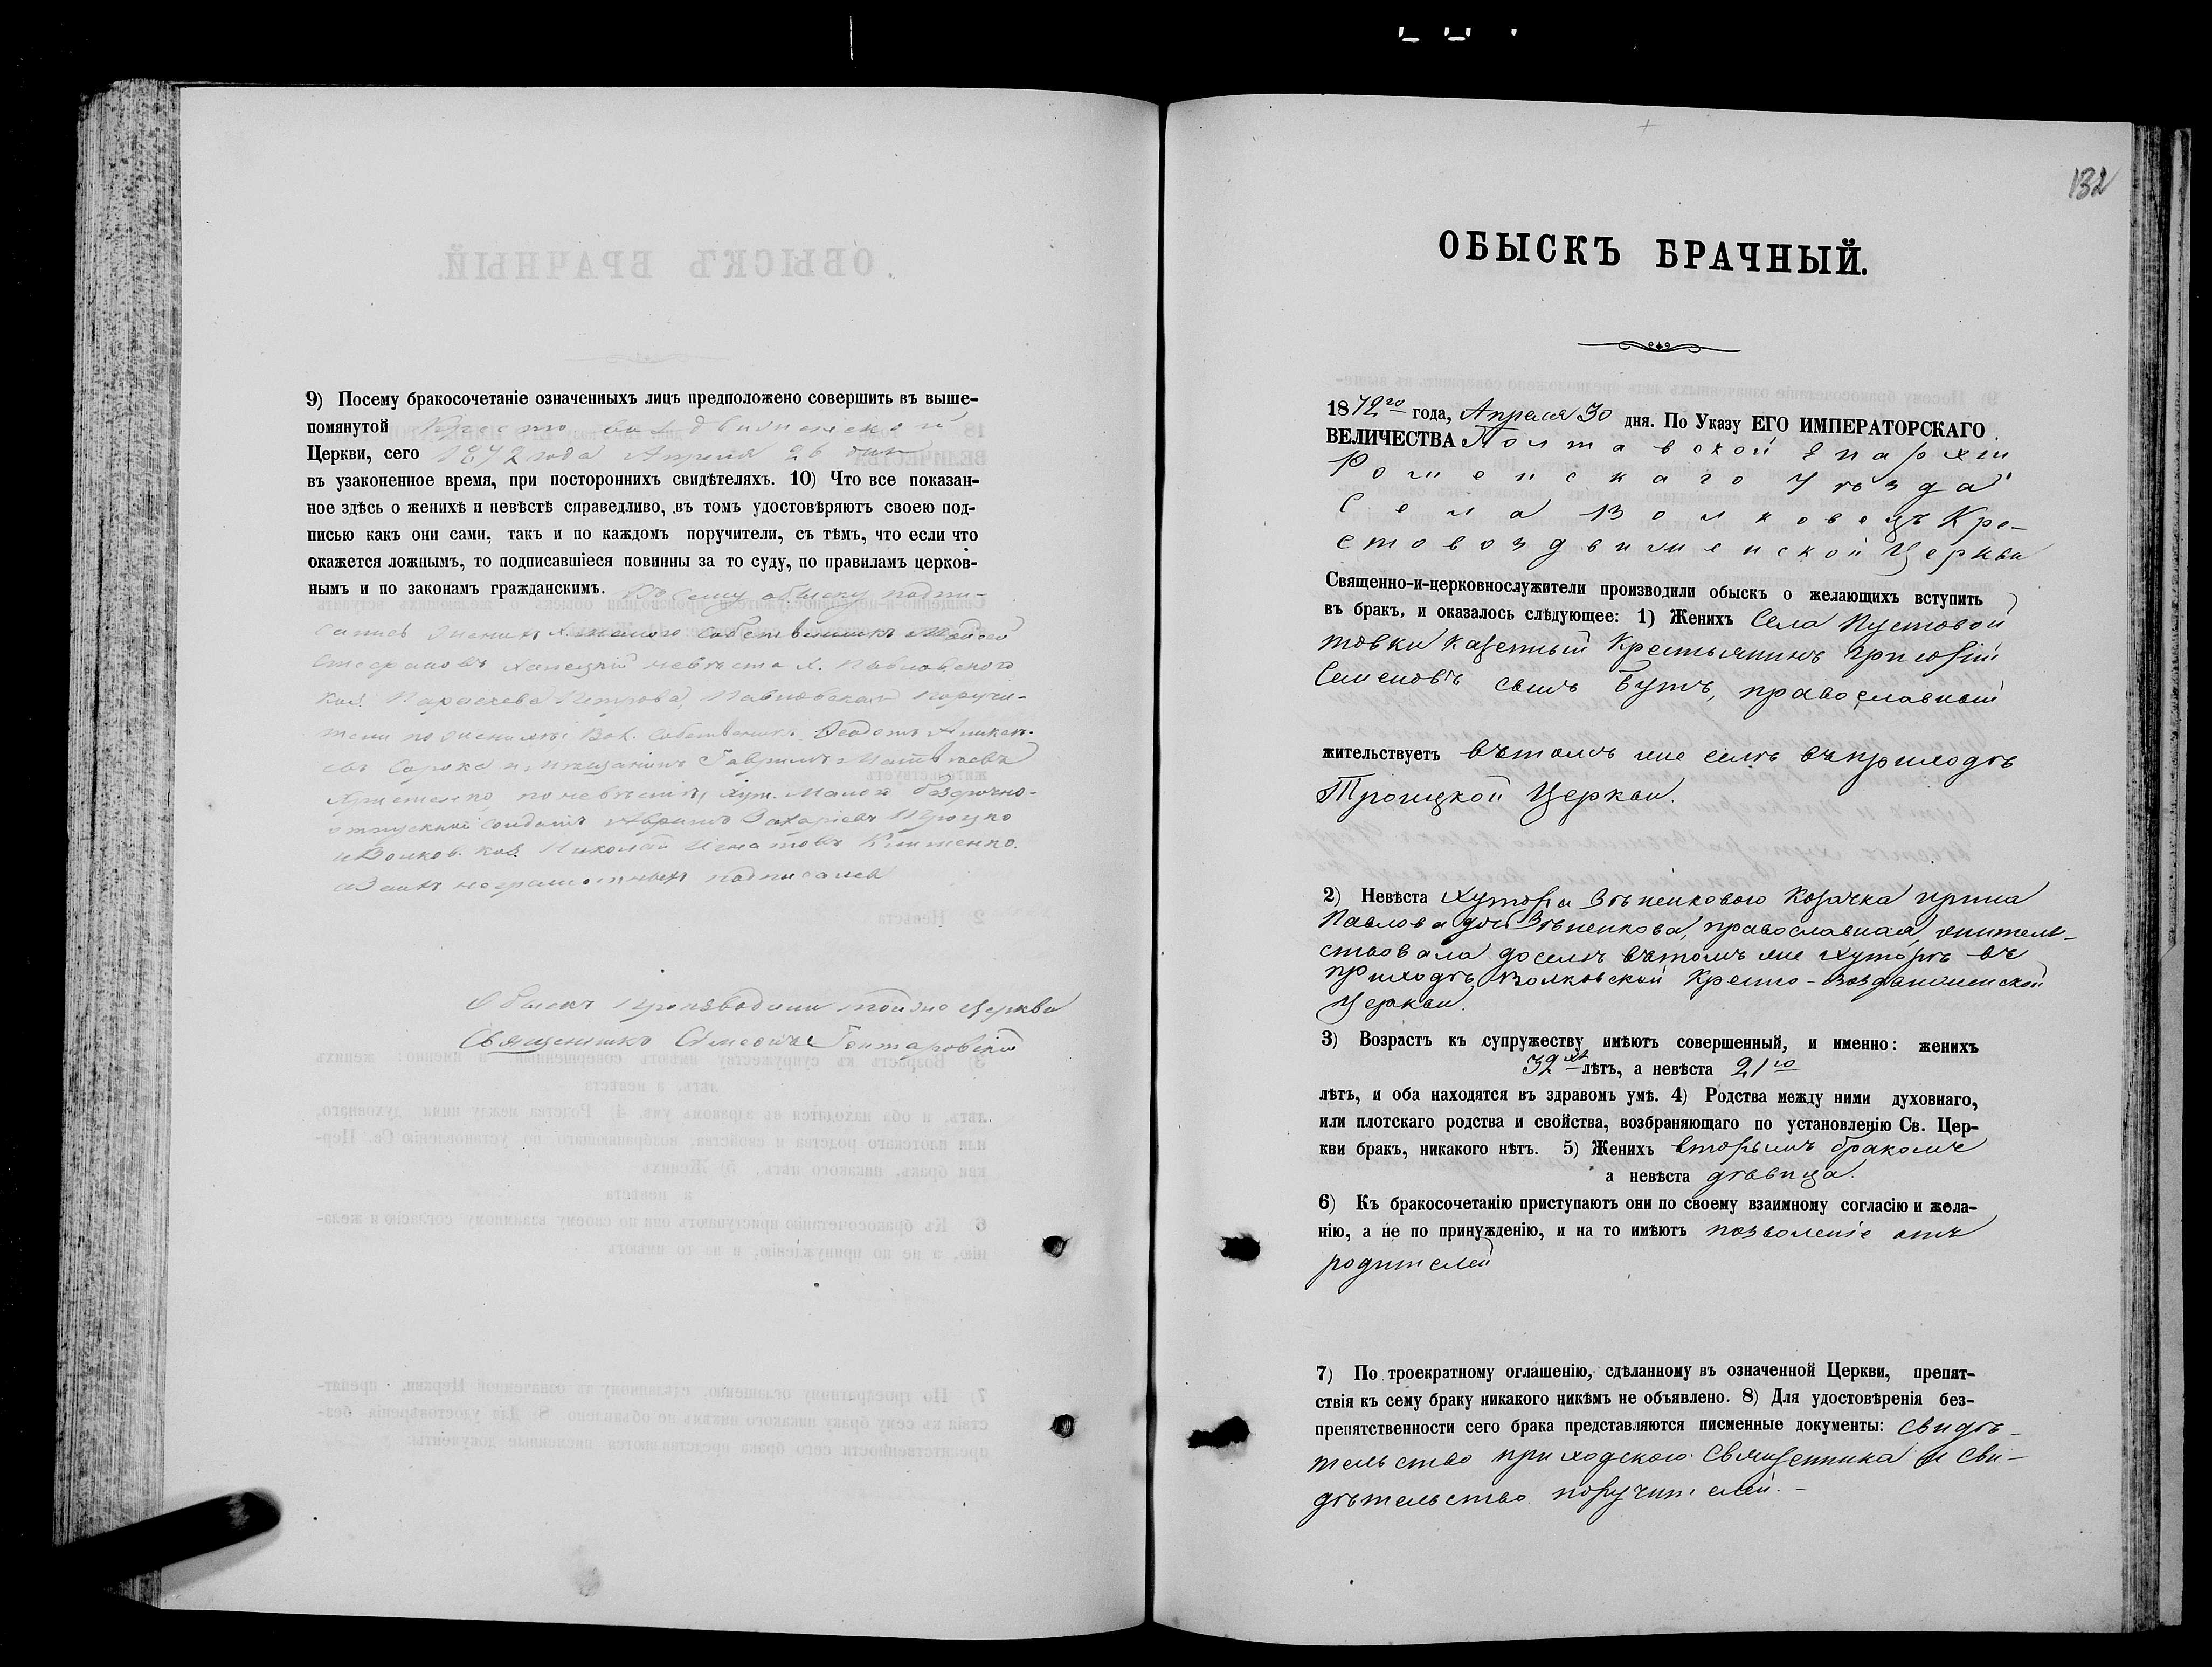 9) Посему бракосочетаніе означенныхъ лицъ предположено совершить въ выше-
помянутой Кресто воздвиженской
Церкви, сего 1872 года Апреля 26 дня
въ узаконенное время, при постороннихъ свидѣтеляхъ. 10) Что все показан-
ное здѣсь о женихѣ и невѣстѣ справедливо, въ томъ удостовѣряютъ своею под-
писью какъ они сами, такъ и по каждомъ поручители, съ тѣмъ, что если что
окажется ложнымъ, то подписавшіеся повинны за то суду, по правиламъ церков-
нымъ и по законамъ гражданскимъ. Къ сему обыску подпи-
сались Женихъ собственникъ
Стефановъ невѣста х. Павловского
каз. Параскева Петрова Павловская Поручи-
тели по женихѣ Вол. Собственникъ Феодотъ
Сорока и Гавріилъ Матвѣевъ
по невѣстѣ хут. безсрочно-
отпускной солдатъ Аврамъ Захаріевъ
и Волков. каз. Николай Игнатовъ
неграмотныхъ подписался
Обыскъ производили той же Церкви
Священникъ Симеонъ Гонтаровскій
132
ОБЫСКЪ БРАЧНЫЙ.
1872го года, Апреля 30 дня. По Указу ЕГО ИМПЕРАТОРСКАГО
ВЕЛИЧЕСТВА Полтавской Епархіи
Роменскаго Уѣзда
Села Волковецъ Кре-
стовоздвиженской Церкви
Священно-и-церковнослужители производили обыскъ о желающихъ вступить
въ бракъ, и оказалось слѣдующее: 1) Женихъ Села Пустовой
товки казенный Крестьянинъ
Семеновъ сынъ Бутъ, православный
жительствуетъ въ томъ же селѣ въ приходѣ
Троицкой Церкви.
2) Невѣста Хутора Зѣненкового Козачка Ирина
Павлова дочь Зѣненкова, православная, житель-
ствовала доселѣ въ томъ же хуторѣ въ
приходѣ Волковской Кресто-Воздвиженской
Церкви.
3) Возрастъ къ супружеству имѣютъ совершенный, и именно: женихъ
32хъ лѣтъ, а невѣста 21го
лѣтъ, и оба находятся въ здравомъ умѣ. 4) Родства между ними духовнаго,
или плотскаго родства и свойства, возбраняющаго по установленію Св. Цер-
кви бракъ, никакого нѣтъ. 5) Женихъ вторымъ бракомъ
а невѣста дѣвица.
6) Къ бракосочетанію приступаютъ они по своему взаимному согласію и жела-
нію, а не по принужденію, и на то имѣютъ позволеніе отъ
родителей
7) По троекратному оглашенію, сдѣланному въ означенной Церкви, препят-
ствія къ сему браку никакого никѣмъ не объявлено. 8) Для удостовѣренія без-
препятственности сего брака представляются писменные документы: свидѣ-
тельство приходского Священника и сви-
дѣтельство поручителей. –